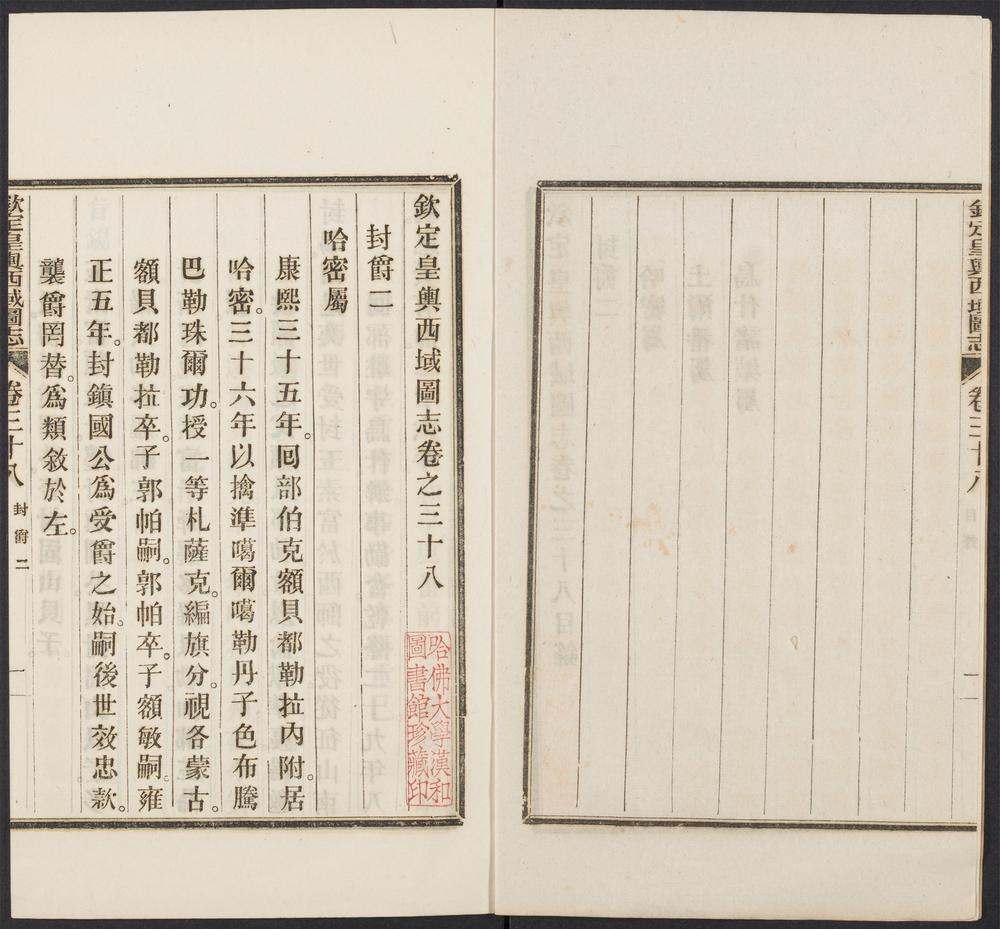 欽定皇輿西域圖志
卷三十八
目錄
一
欽定皇輿西域圖志卷之三十八
哈佛大學漢和
圖書館珍藏印
封爵二
哈密屬
康熙三十五年。回部伯克額貝都勒拉內附。居
哈密。三十六年以擒準噶爾噶勒丹子色布騰
巴勒珠爾功。授一等札薩克。編旗分。視各蒙古。
額貝都勒拉卒。子郭帕嗣。郭帕卒。子額敏嗣。雍
正五年。封鎮國公爲受爵之始。嗣後世效忠款。
襲爵罔替。爲類敘於左。
欽定皇輿西域圖志
卷三十八
封爵二
一